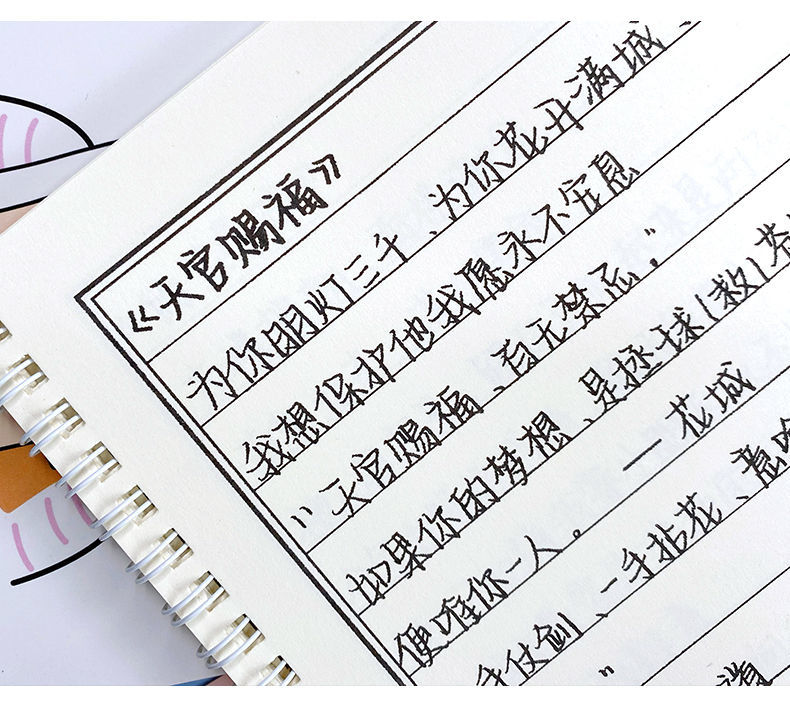 《天官赐福》
为你明灯三千、为你花开满城、
我想保护他我愿永不安息
"天官赐福、百无禁忌。"
如果你的梦想、是拯球(救)苍
便唯你一人。 — 花城
手仗剑、一手拈花、意
"